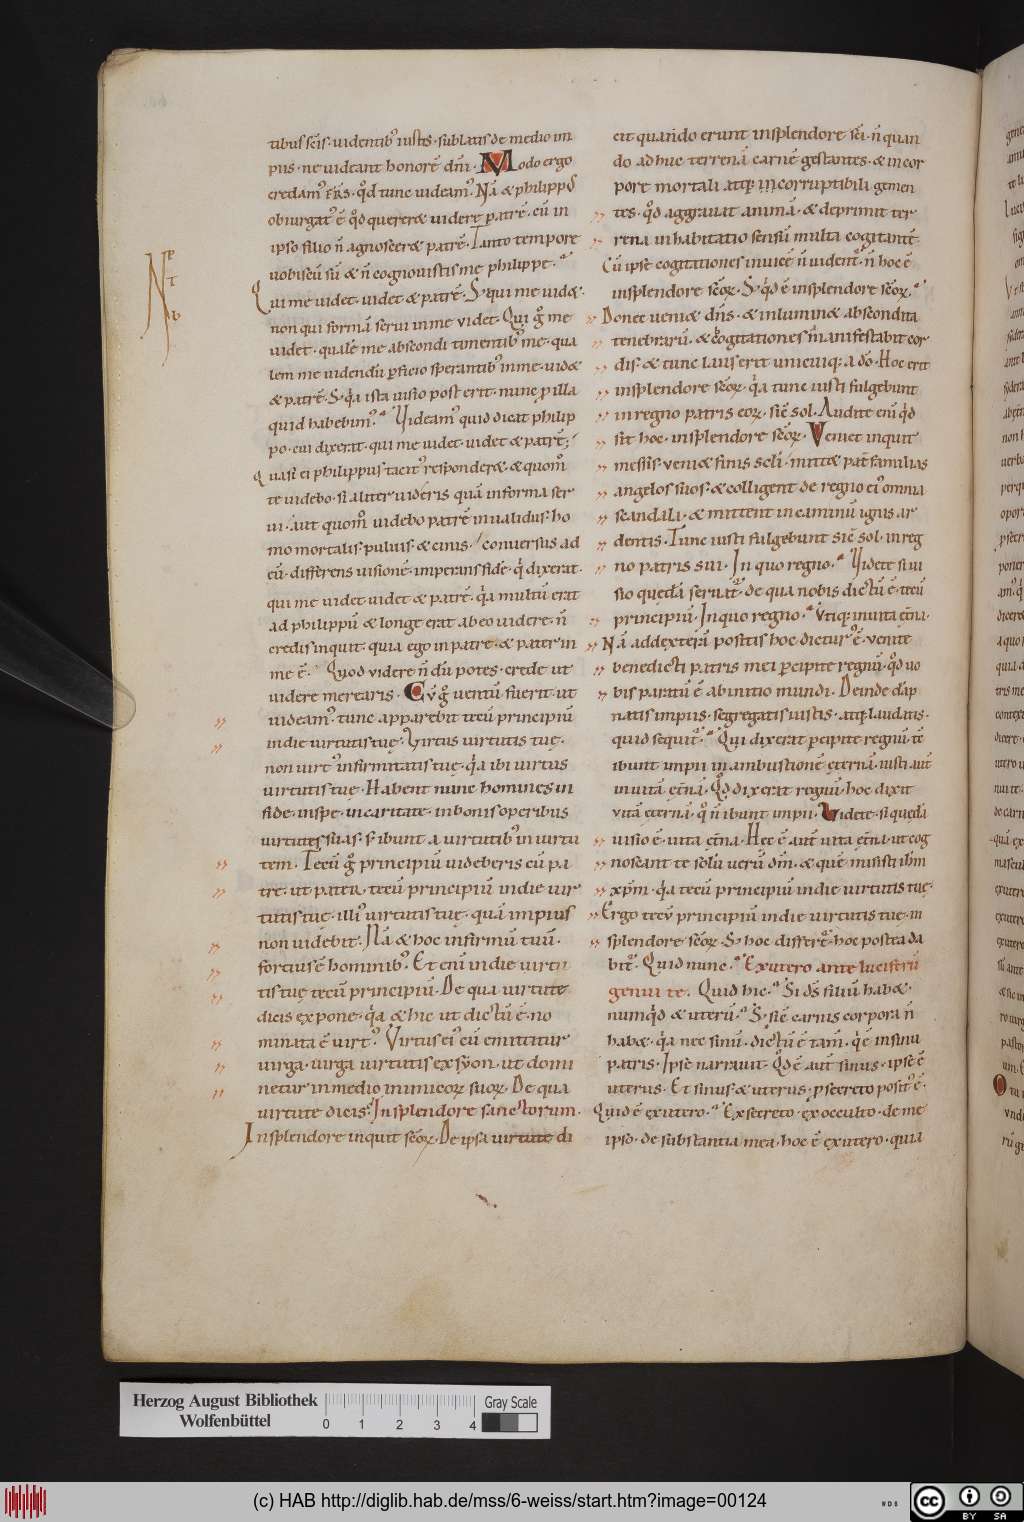 tibus sc̄is · uidentib᾽ iustis · sublatis de medio im
piis · ne uideant honorē dn̄i · Modo ergo
credam᾽ fr̄s · qd̄ tunc uideam᾽ · Nā & philippū
obiurgat᾽ ē qd̄ quereret uidere patrē · cū in
ipso filio n̄ agnosceret patrē · Tanto tempore
uobiscū sū & n̄ cognouistis me philippe ·
Qui me uidet · uidet & patrē · S; qui me uidet ·
non qui formā serui in me videt · Qui g̊ me
uidet · qualē me abscondi timentib᾽ me · qua
lem me uidendū ꝑficio sperantib᾽ in me · uidet
& patrē · S; q̄a ista uisio post erit · nunc ꝑ illa
quid habebim᾽ · Uideam᾽ quid dicat philip
po · cui dixerat · qui me videt · videt & patrē;
Quasi ei philippus tacit᾽ responderet · & quom̊
te videbo · si aliter uideris quā in forma ser
ui · aut quom̊ videbo patrē inualidus ho
mo mortalis · puluis · & cinis / conuersus ad
eū · differens uisionē · imperans fidē · qd̄ dixerat ·
qui me videt videt & patrē · q̄a multū erat
ad philippū & longe erat ab eo uidere · n̄
credis inquit · quia ego in patre · & pater in
me ē · Quod videre n̄ dū potes · crede ut
uidere merearis · Cū g̊ uentū fuerit ut
uideam᾽ · tunc apparebit tecū principiū
in die uirtutis tuę · Virtus uirtutis tuę ·
non uirt᾽ infirmitatis tuę · q̄a ibi uirtus
uirtutis tuę · Habent nunc homines in
fide · in spe · in caritate · in bonis operibus
uirtutes suas · s; ibunt a uirtutib᾽ in uirtu
tem · Tecū g̊ principiū uideberis cū pa
tre · ut pateat tecū principiū in die uir
tutis tuę · illi᾽ uirtutis tuę · quā impius
non uidebit · Nā & hoc infirmū tuū ·
fortius ē hominib᾽ · Et enī in die uirtu
tis tuę tecū principiū · De qua uirtute
dicis expone · q̄a & hic ut dictū ē · no
minata ē uirt᾽ · Virtus ei᾽ cū emittitur
uirga · uirga uirtutis ex syon · ut domi
netur in medio inimicoꝝ suoꝝ · De qua
uirtute dicis · In splendore sanctorum ·
In splendore inquit sc̄oꝝ · De ipsa uirtute di
cit quando erunt in splendore sc̄i · n̄ quan
do adhuc terrenā carnē gestantes · & in cor
pore mortali atq; incorruptibili gemen
tes · qd̄ aggrauat animā · & deprimit ter
rena inhabitatio sensū multa cogitantē ·
Cū ipsę cogitationes inuicē n̄ uident᾽ · n̄ hoc ē
in splendore sc̄oꝝ · S; qd̄ ē in splendore sc̄oꝝ ·
Donec ueniat dn̄s · & inluminet abscondita
tenebrarū · & cogitationes manifestabit cor
dis · & tunc laus erit unicuiq; a dō · Hoc erit
in splendore sc̄oꝝ · q̄a tunc iusti fulgebunt
in regno patris eoꝝ · sic̄ sol · Audite enī qd̄
sit hoc · in splendore sc̄oꝝ · Veniet inquit
messis · veniet finis sc̄li · mittet pat̄ familias
angelos suos · & colligent de regno ei᾽ omnia
scandala · & mittent in caminū ignis ar
dentis · Tunc iusti fulgebunt sic̄ sol · in reg
no patris sui · In quo regno · Videte si ui
sio quędā seruat᾽ · de qua nobis dictū ē · tecū
principiū · In quo regno · Vtiq; in uita ęt̄na ·
Nā ad dexterā positis hoc dictur᾽ ē · venite
benedicti patris mei ꝑcipite regnū · qd̄ uo
bis paratū ē ab initio mundi · Deinde dāp
natis impiis · segregatis iustis · atq; laudatis ·
quid sequit᾽ · Qui dixerat ꝑcipite regnū · tc̄
ibunt impii in ambustionē ęternā · iusti aut̄
in uitā ęt̄nā · Qd̄ dixerat regnū · hoc dixit
vitā ęternā · q̊ n̄ ibunt impii · Videte · si quędā
uisio ē · uita ęt̄na · Hęc ē aut̄ vita ęt̄na · ut cog
noscant te solū uerū dm̄ · & quē misisti ihm̄
xpm̄ · q̄a tecū principiū in die uirtutis tuę ·
Ergo tecū principiū in die uirtutis tuę · in
splendore sc̄oꝝ · S; hoc differt᾽ · hoc postea da
bit᾽ · Quid nunc · Ex utero ante luciferū
genui te · Quid hic · Si ds̄ filiū habet ·
numqd̄ & uterū · S; sic̄ carnis corpora n̄
habet · q̄a nec sinū · dictū ē tam̄ · q̄ ē in sinu
patris · Ipsę narrauit · Qd̄ ē aut̄ sinus · ipsę ē
uterus · Et sinus & uterus · ꝓ secreto posit᾽ ē ·
Quid ē ex utero · Ex secreto · ex occulto · de me
ipso · de substantia mea · hoc ē ex utero · quia
Herzog August Bibliothek
Wolfenbüttel
0 1 2 3 4
Gray Scale
(c) HAB http://diglib.hab.de/mss/6-weiss/start.htm?image=00124
cc BY SA